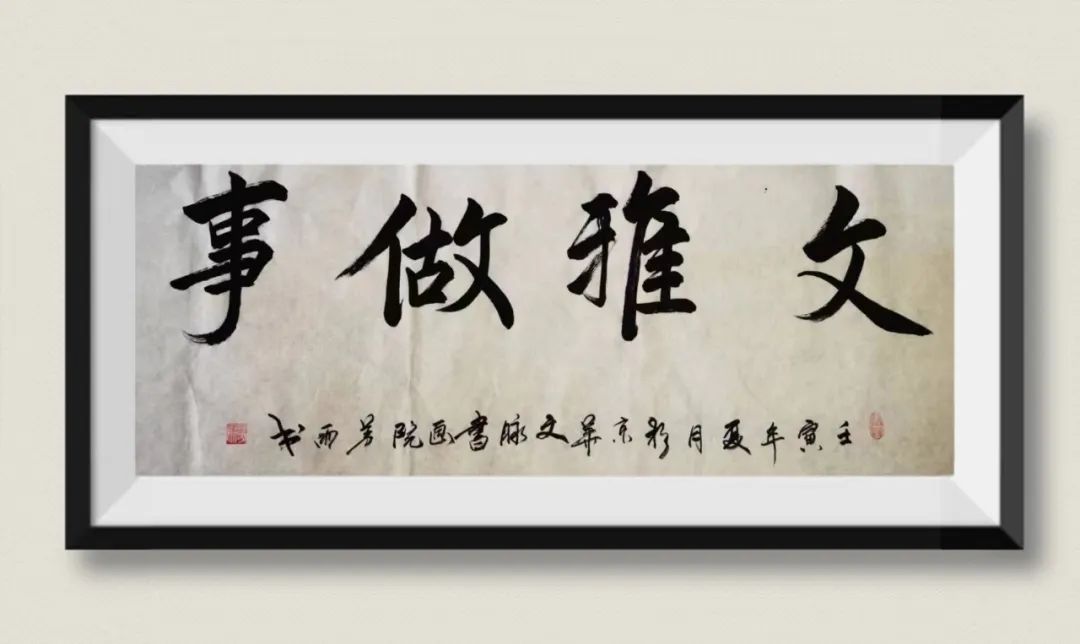 文雅做事
壬寅年夏月於京華文脉書画院芳雨书